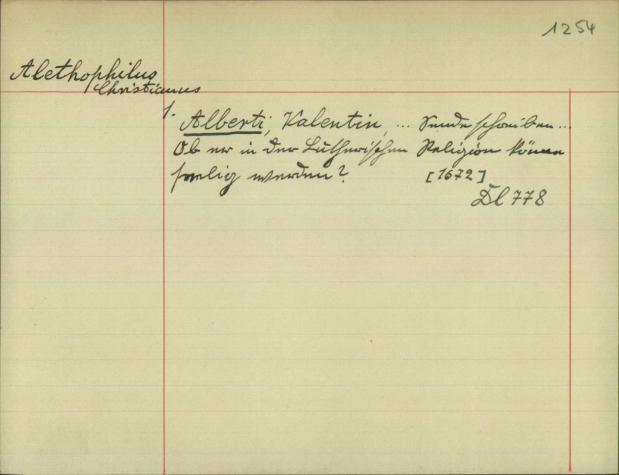 1254
Alethophilus
Christianus
1. Alberti, Valentin, ... Sendschreiben ...
Ob er in der Lutherischen Religion könne
seelig werden?
[1672]
Dl 778